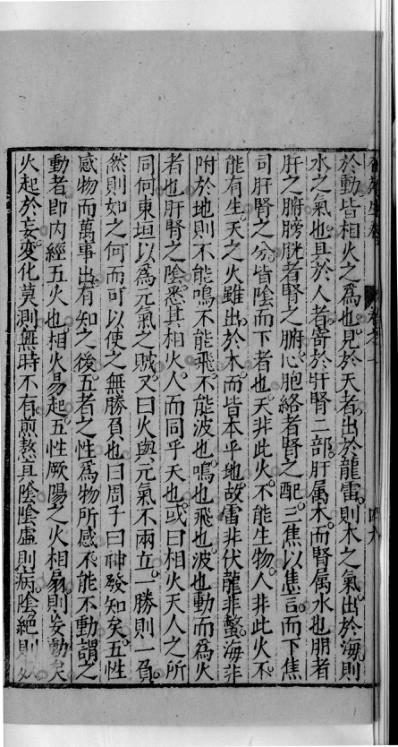 於動皆相火之為也見於天者出於龍雷則木之氣出於海則
水之氣也具於人者寄於肝腎二部肝属木而腎属水也胆者
肝之腑膀胱者腎之腑心胞絡者腎之配三焦以焦言而下焦
司肝腎之分皆陰而下者也天非此火不能生物人非此火不
能有生天之火雖出於木而皆本乎地故雷非伏龍非蟄海非
附於地則不能鳴不能飛不能波也鳴也飛也波也動而為火
者也肝腎之陰悉其相火人而同乎天也或曰相火天人之所
同何東垣以為元氣之賊又曰火與元氣不兩立一勝則一負
然則如之何而可以使之無勝負也曰周子曰神發知矣五性
感物而萬事出有知之後五者之性為物所感不能不動謂之
動者即内經五火也相火易起五性厥陽之火相扇則妄動矣
火起於妄變化莫測無時不有煎熬真陰陰虛則病陰絕則